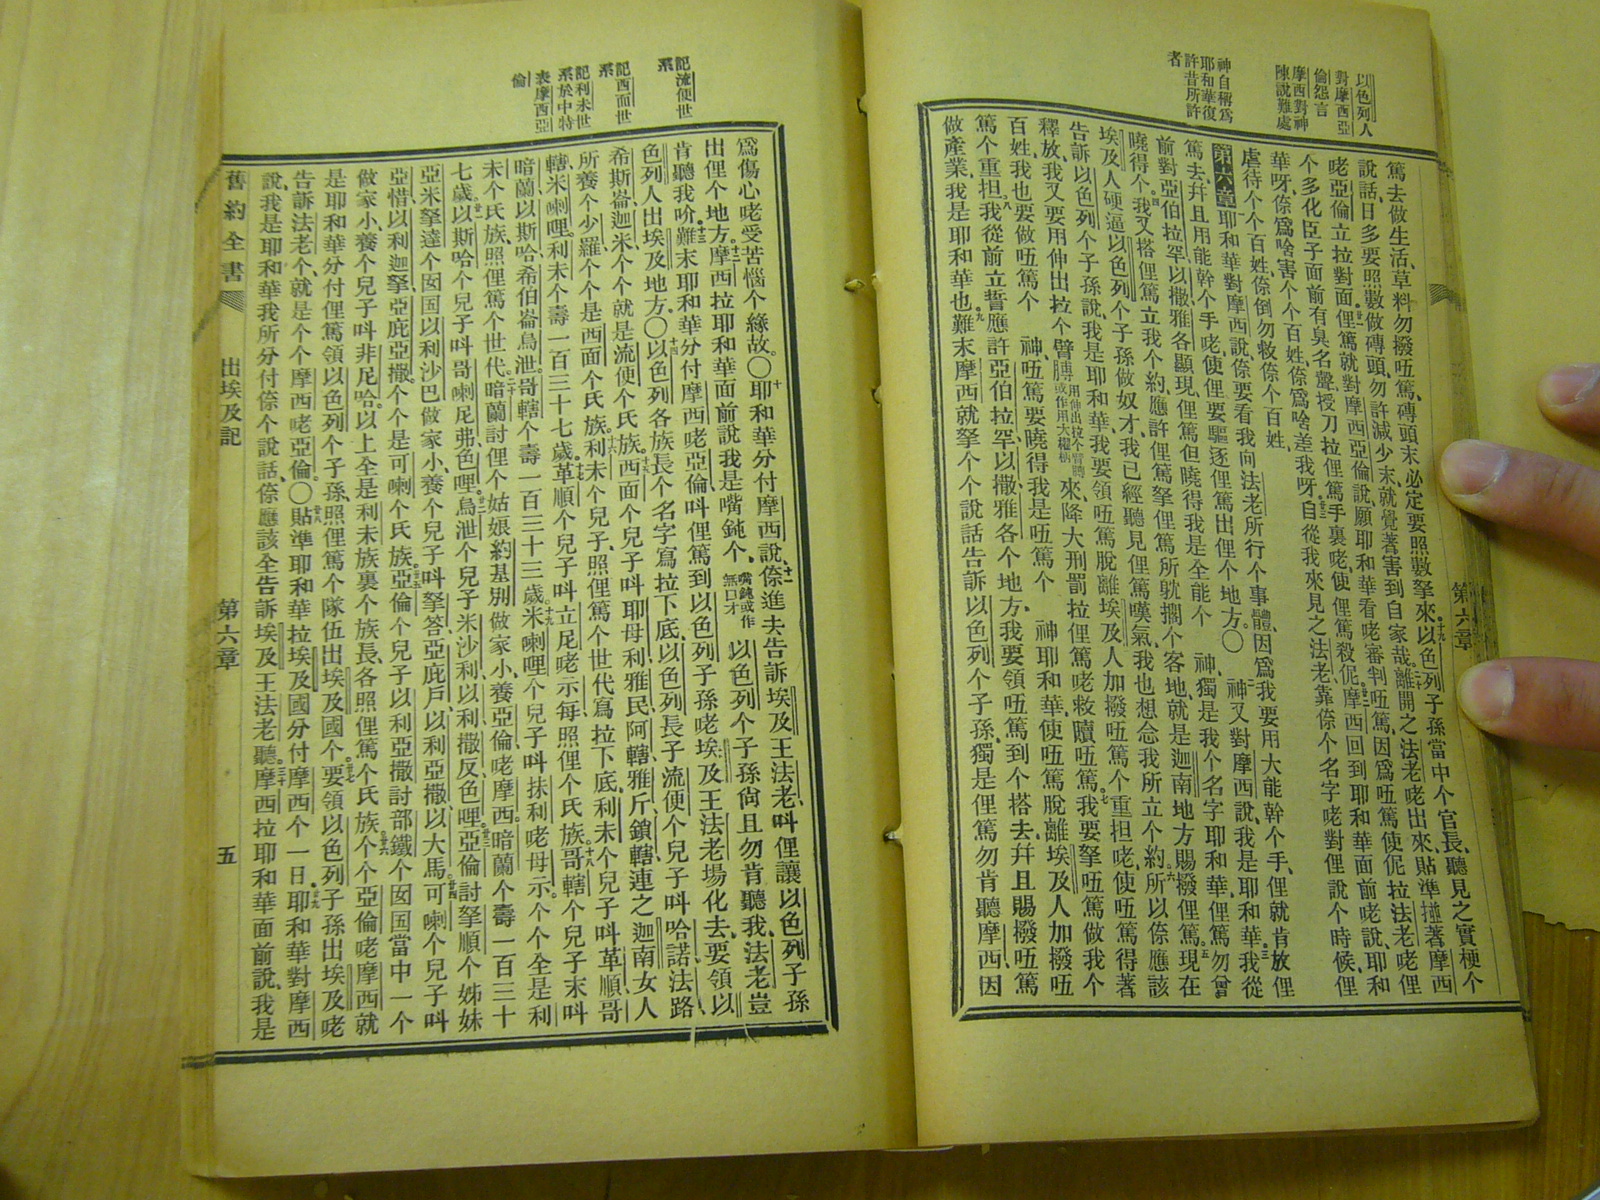 以色列人
對摩西亞
倫怨言
摩西對神
陳說難處
神自稱爲
耶和華復
許昔所許
者
第六章
篤去做生活、草料勿撥㕶篤、磚頭末、必定要照數拏來。以色列子孫當中个官長、聽見之實梗个
說話、日多要照數做磚頭、勿許減少末、就覺著害到自家哉。離開之法老咾出來、貼準撞著摩西
咾亞倫、立拉對面。俚篤就對摩西亞倫說、願耶和華看咾審判㕶篤、因爲㕶篤使伲拉法老咾俚
个多化臣子面前有臭名聲、授刀拉俚篤手裏咾、使俚篤殺伲。摩西回到耶和華面前咾說、耶和
華呀、倷爲啥害个个百姓、倷爲啥差我呀。自從我來見之法老、靠倷个名字咾對俚說个時候、俚
虐待个个百姓、倷倒勿救倷个百姓、
第六章 耶和華對摩西說、倷要看我向法老所行个事體、因爲我要用大能幹个手、俚就肯放俚
篤去、幷且用能幹个手咾、使俚要驅逐俚篤出俚个地方。〇神又對摩西說、我是耶和華。我從
前對亞伯拉罕、以撒、雅各顯現、俚篤但曉得我是全能个 神、獨是我个名字耶和華、俚篤勿曾
曉得个。我又搭俚篤立我个約、應許俚篤拏俚篤所躭擱个客地、就是迦南地方、賜撥俚篤。現在
埃及人硬逼以色列个子孫做奴才、我已經聽見俚篤嘆氣、我也想念我所立个約。所以倷應該
告訴以色列个子孫說、我是耶和華、我要領㕶篤脫離埃及人加撥㕶篤个重担咾、使㕶篤得著
釋放、我又要用伸出拉个臂膊用伸出拉个臂膊或作用大權柄來、降大刑罰拉俚篤咾救贖㕶篤。我要拏㕶篤做我个
百姓、我也要做㕶篤个 神、㕶篤要曉得我是㕶篤个 神耶和華、使㕶篤脫離埃及人加撥㕶
篤个重担。我從前立誓應許亞伯拉罕、以撒、雅各个地方、我要領㕶篤到个搭去、幷且賜撥㕶篤
做產業、我是耶和華也。難末摩西就拏个个說話告訴以色列个子孫、獨是俚篤勿肯聽摩西、因
記流便世
系
記西面世
系
記利未世
系於中特
表摩西亞
倫
爲傷心咾受苦惱个緣故。〇耶和華分付摩西說、倷進去告訴埃及王法老、呌俚讓以色列子孫
出俚个地方。摩西拉耶和華面前說、我是嘴鈍个、嘴鈍或作無口才以色列个子孫尙且勿肯聽我、法老豈
肯聽我吤。難末耶和華分付摩西咾亞倫、呌俚篤到以色列子孫咾埃及王法老塲化去、要領以
色列人出埃及地方。〇以色列各族長个名字寫拉下底、以色列長子流便个兒子、呌哈諾、法路、
希斯崙、迦米、个个就是流便个氏族。西面个兒子呌耶母利、雅民、阿轄、雅斤、鎖轄、連之迦南女人
所養个少羅、个个是西面个氏族。利未个兒子、照俚篤个世代寫拉下底、利未个兒子呌革順、哥
轄、米喇哩、利未个壽一百三十七歲。革順个兒子呌立尼咾示每、照俚个氏族。哥轄个兒子末呌
暗蘭、以斯哈、希伯崙、烏泄、哥轄个壽一百三十三歲。米喇哩个兒子呌抹利咾母示。个个全是利
未个氏族、照俚篤个世代。暗蘭討俚个姑娘約基別做家小、養亞倫咾摩西。暗蘭个壽一百三十
七歲。以斯哈个兒子呌哥喇、尼弗、色哩。烏泄个兒子、米沙利、以利撒反、色哩。亞倫討拏順个姊妹、
亞米拏達个囡囯以利沙巴做家小、養个兒子呌拏答、亞庇戶、以利亞撒、以大馬。可喇个兒子呌
亞惜、以利迦拏、亞庇亞撒、个个是可喇个氏族。亞倫个兒子以利亞撒、討部鐵个囡囯當中一个
做家小、養个兒子呌非尼哈。以上全是利未族裏个族長、各照俚篤个氏族。个个亞倫咾摩西、就
是耶和華分付俚篤、領以色列个子孫、照俚篤个隊伍出埃及國个。要領以色列子孫出埃及咾
告訴法老个、就是个个摩西咾亞倫。〇貼準耶和華拉埃及國分付摩西个一日、耶和華對摩西
說、我是耶和華、我所分付倷个說話、倷應該全告訴埃及王法老聽。摩西拉耶和華面前說、我是
舊約全書
出埃及記
第六章
五